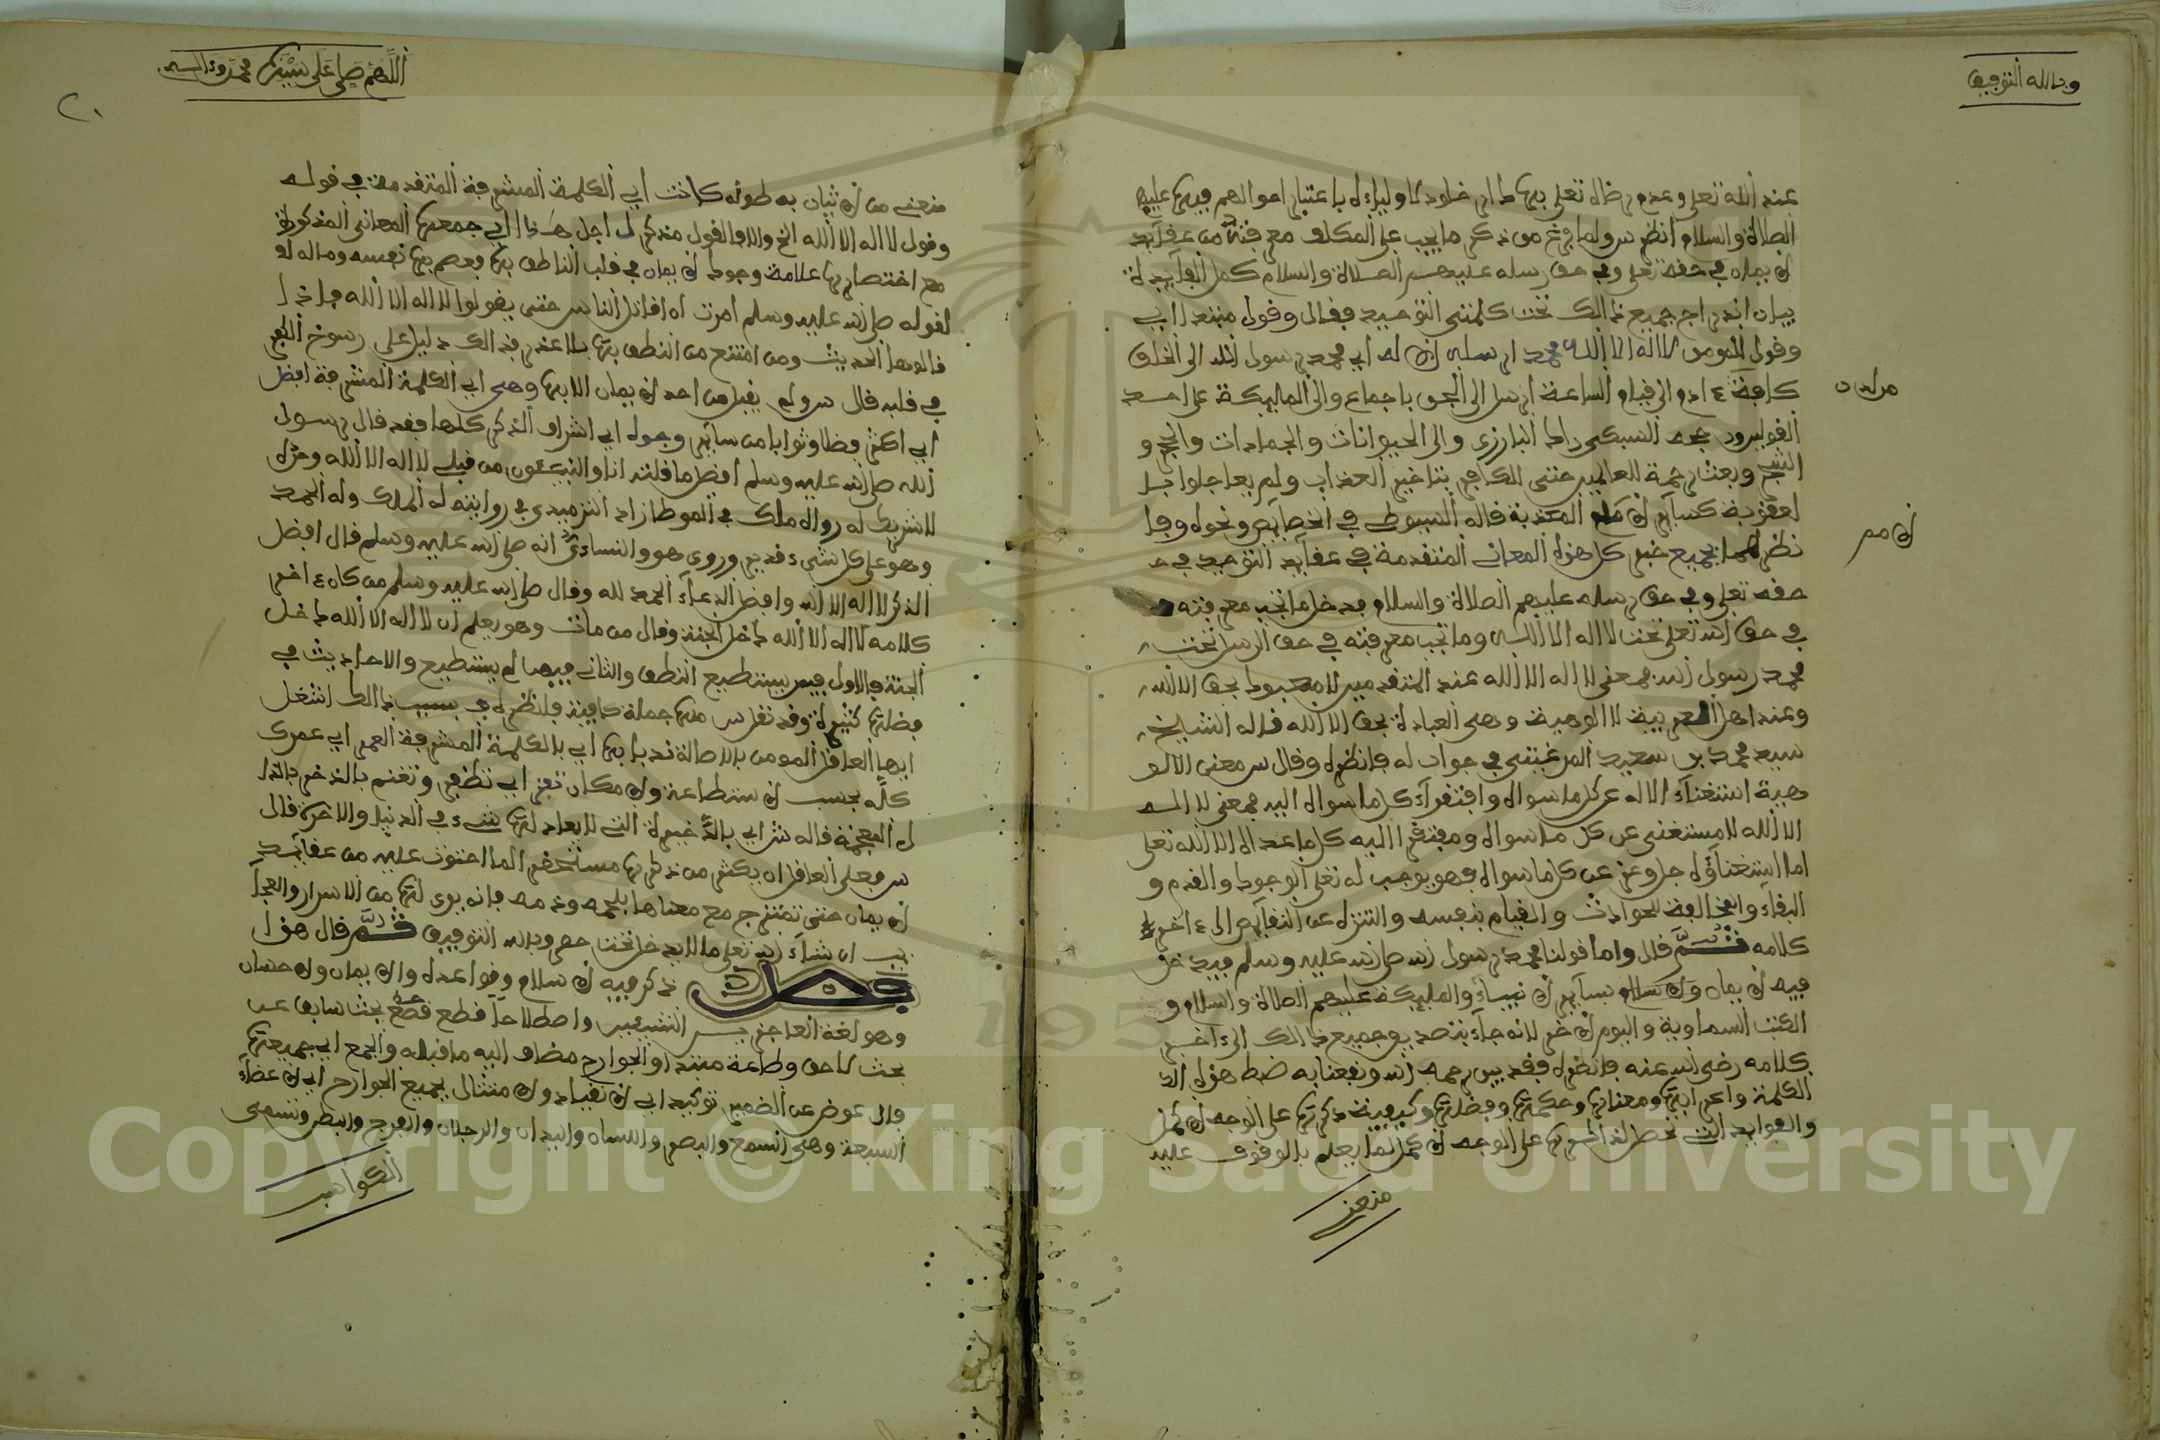 وبالله التوفيق
عند الله تعلى وعدم رضاه تعلى بها دار خلود لاوليائه باعتبار احوالهم فيها عليهم
الصلاة والسلام انظر س ولما فرغ من ذكر ما يجب على المكلف معرفته من عقآيد
الايمان في حقه تعلى وفي حق رسله عليهم الصلاة والسلام كمل الفآيدة
ببيان اندراج جميع ذالك تحت كلمتي التوحيد فقال وقول مبتدا اي
وقول المومن لا اله الا الله محمد ارسله الاله اي محمد رسول الله الى الخلق
كآفة ءادم الى قيام الساعة ارسل الى الجن باجماع والى الملايكة على احد
القولين ورجحه السبكي زاد البارزي والى الحيوانات والجمادات والحجر و
الشجر وبعث رحمة للعالمين حتى للكافر بتاخير العذاب ولم يعاجلوا بـ
لعقوبة كسآير الامم المكذبة قاله السيوطي في الخصآيص ونحوه وقا
الامم
نظرهما يجمع خبر كل هذه المعاني المتقدمة في عقآيد التوحيد في
حقه تعلى وفي حق رسله عليهم الصلاة والسلام فدخل ما تجب معرفته
في حق الله تعلى تحت لا اله الا الله وما تجب معرفته في حق الرسل تحت
محمد رسول الله فمعنى لا اله الا الله عند المتقدمين لا معبود بحق الا الله
وعند اهل العربية لا الوهية وهي العبادة بحق الا الله قاله الشيخ
سيد محمد بن سعيد المرغيتي في جواب له فانظره وقال س معنى الالو
هية استغنآء الاله عن كل ما سواه وافتقرآء كل ما سواه اليه فمعنى لا اله
الا الله لا مستغنى عن كل ما سواه ومفتقرا اليه كل ما عداه الا الله تعلى
اما استغنآؤه جل وعز عن كل ما سواه فهو يوجب له تعلى الوجود والقدم و
البقآء والمخالفة للحوادث والقيام بنفسه والتنزه عن النقآيص الى ءاخر
كلامه ثم قال واما قولنا محمد رسول الله صلى الله عليه وسلم فيدخل
فيه الايمان بسآير الانبيآء والمليكة عليهم الصلاة والسلام و
الكتب السماوية واليوم الاخر لانه جآء بتصديق جميع ذالك الى ءاخر
كلامه رضي الله عنه فانظره فقد بين رحمه الله ونفعنا به ضبط هذه
الكلمة واعرابها ومعناها وحكمها وفضلها وكيفية ذكرها على الوجه الاكمل
والفوايد التي تحصل لذاكرها على الوجه الاكمل مما يعلم بالوقوف عليه
اللهم صلي على سيدنا محمد وءاله
٢٠
من ان ثيان به طوله كانت اي الكلمة المشرفة المتقدمة في قوله
وقول لا اله الا الله الخ والقول مذكر لاجل هذا اي جمعها المعاني المذكورة
مع اختصارها علامة وجود الايمان في قلب الناطق بها فيعصم بها نفسه وماله
لقوله صلى الله عليه وسلم امرت ان اقاتل الناس حتى يقولوا لا اله الا الله فاذا
قالوها الحديث ومن امتنع من النطق بها بلا عذر فذالك دليل على رسوخ الكفر
في قلبه قال س ولم يقبل من احد الايمان الا بها وهي اي الكلمة المشرفة افضل
اي اكثر فضلا وثوابا من سآير وجوه اي اشرف الذكر كلها فقد قال رسول
الله صلى الله عليه وسلم افضل ما قلته انا والنبيئون من قبلي لا اله الا الله وحده
لا شريك له رواه ملك في الموطا زاد الترميدي في روايته له الملك وله الحمد
وهو على كل شيء قدير وروى هو والنساءي انه صلى الله عليه وسلم قال افضل
الذكر لا اله الا الله وافضل الدعآء الحمد لله وقال صلى الله عليه وسلم من كان ءاخر
كلامه لا اله الا الله دخل الجنة وقال من مات وهو يعلم ان لا اله الا الله دخل
الجنة فالاول فيمن يستطيع النطق والثاني فيمن لم يستطيع والاحاديث في
فضلها كثيرة وقد نقل س منها جملة كافية فلننظره فبسبب ذالك اشتغل
ايها العاقل المومن بالاصالة بها اي بالكلمة المشرفة العمر اي عمرك
كله بحسب الاستطاعة والامكان تفز اي تظفر وتغنم بالذخر بالذا
ل المعجمة قاله ش اي بالذخيرة التي لا يعاد لها شيء في الدنيا والاخرة قال
س فعلى العاقل ان يكثر من ذكرها مستحضرا لما احتوت عليه من عقآيد
الايمان حتى تمتزج مع معناها بلحمه ودمه فانه يرى لها من الاسرار والعجآ
يب ان شآء الله تعلى ما لا يدخل تحت حصر وبالله التوفيق ثم قال هذا
فصل ذكر فيه الاسلام وقواعده والايمان والاحسان
وهو لغة الحاجز بين الشيئين واصطلاحآ قطع بحث سابق عن
بحث لاحق وطاعة مبتدا والجوارح مضاف اليه ما قبله والجمع اي جميعها
وال عوض عن الضمير توكيد اي الانقياد والامتثال بجميع الجوارح اي الاعضآء
السبعة وهي السمع والبصر واللسان واليدان والرجلان والفرج والبطن وتسمى
الكواسب
Copyright © King Saud University
1957